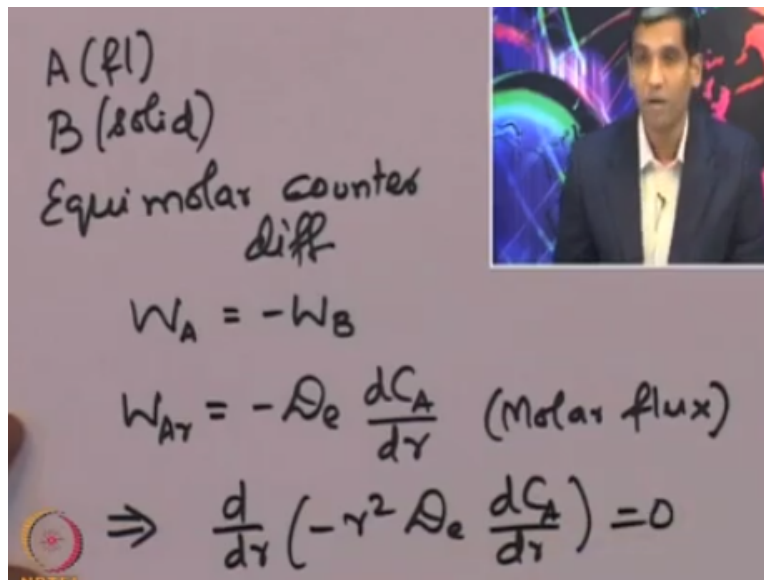 A (fl)
B (solid)
Equimolar counter
diff
W_A = -W_B
W_Ar = -D_e dC_A/dr (Molar flux)
⇒ d/dr (-r² D_e dC_A/dr) = 0